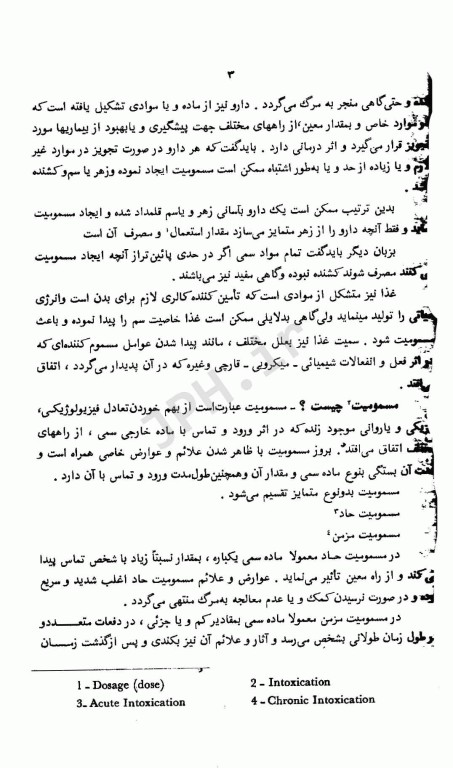 ۳
و حتی گاهی منجر به مرگ می‌گردد . دارو نیز از ماده و یا موادی تشکیل یافته است که
موارد خاص و بمقدار معین ، از راههای مختلف جهت پیشگیری و یا بهبود از بیماریها مورد
تجویز قرار می‌گیرد و اثر درمانی دارد . باید گفت که هر دارو در صورت تجویز در موارد غیر
و یا زیاده از حد و یا به‌طور اشتباه ممکن است مسمومیت ایجاد نموده وزهر یا سم و کشنده
بدین ترتیب ممکن است یک دارو بآسانی زهر و یاسم قلمداد شده و ایجاد مسمومیت
و فقط آنچه دارو را از زهر متمایز می‌سازد مقدار استعمال۱ و مصرف آن است
بزبان دیگر باید گفت تمام مواد سمی اگر در حدی پائین‌تر از آنچه ایجاد مسمومیت
می‌کنند مصرف شوند کشنده نبوده وگاهی مفید نیز می‌باشند .
غذا نیز متشکل از موادی است که تأمین کننده کالری لازم برای بدن است وانرژی
را تولید مینماید ولی گاهی بدلایلی ممکن است غذا خاصیت سم را پیدا نموده و باعث
مسمومیت شود . سمیت غذا نیز بعلل مختلف ، مانند پیدا شدن عوامل مسموم کننده‌ای که
بر اثر فعل و انفعالات شیمیائی ـ میکروبی ـ قارچی وغیره که در آن پدیدار می‌گردد ، اتفاق
مسمومیت۲ چیست ؟ ـ مسمومیت عبارت است از بهم خوردن تعادل فیزیولوژیکی،
و یا روانی موجود زنده که در اثر ورود و تماس با ماده خارجی سمی ، از راههای
مختلف اتفاق می‌افتد . بروز مسمومیت با ظاهر شدن علائم و عوارض خاصی همراه است و
شدت آن بستگی بنوع ماده سمی و مقدار آن وهمچنین طول مدت ورود و تماس با آن دارد .
مسمومیت بدو نوع متمایز تقسیم می‌شود .
مسمومیت حاد۳
مسمومیت مزمن۴
در مسمومیت حاد معمولا ماده سمی یکباره ، بمقدار نسبتاً زیاد با شخص تماس پیدا
می‌کند و از راه معین تأثیر می‌نماید . عوارض و علائم مسمومیت حاد اغلب شدید و سریع
بوده و در صورت نرسیدن کمک و یا عدم معالجه به‌مرگ منتهی می‌گردد .
در مسمومیت مزمن معمولا ماده سمی بمقادیر کم و یا جزئی ، در دفعات متعــددو
طول زمان طولانی بشخص می‌رسد و آثار و علائم آن نیز بکندی و پس از گذشت زمــان
1 - Dosage (dose)
2 - Intoxication
3- Acute Intoxication
4 - Chronic Intoxication
JPH.ir